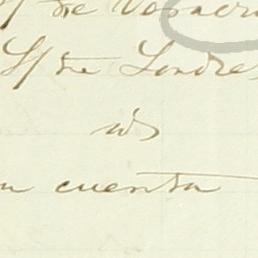 S/ de Veracru
S/ de Londres
id
n cuenta